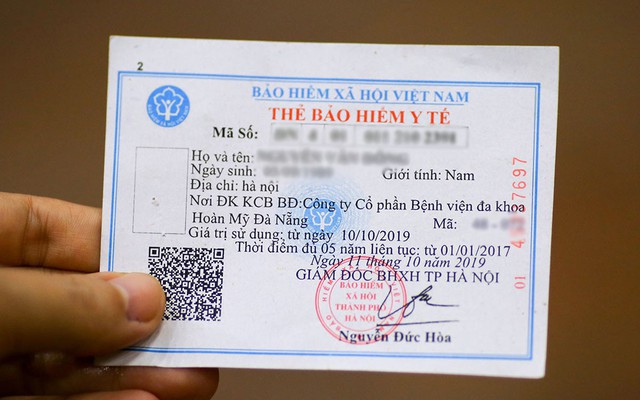 2
BẢO HIỂM XÃ HỘI VIỆT NAM
THẺ BẢO HIỂM Y TẾ
Mã Số:
Họ và tên:
Ngày sinh: Giới tính: Nam
Địa chỉ: hà nội
Nơi ĐK KCB BĐ:Công ty Cổ phần Bệnh viện đa khoa
Hoàn Mỹ Đà Nẵng Mã:
Giá trị sử dụng: từ ngày 10/10/2019
Thời điểm đủ 05 năm liên tục: từ 01/01/2017
Ngày 11 tháng 10 năm 2019
GIÁM ĐỐC BHXH TP HÀ NỘI
BẢO HIỂM
XÃ HỘI
THÀNH PHỐ
HÀ NỘI
Nguyễn Đức Hòa